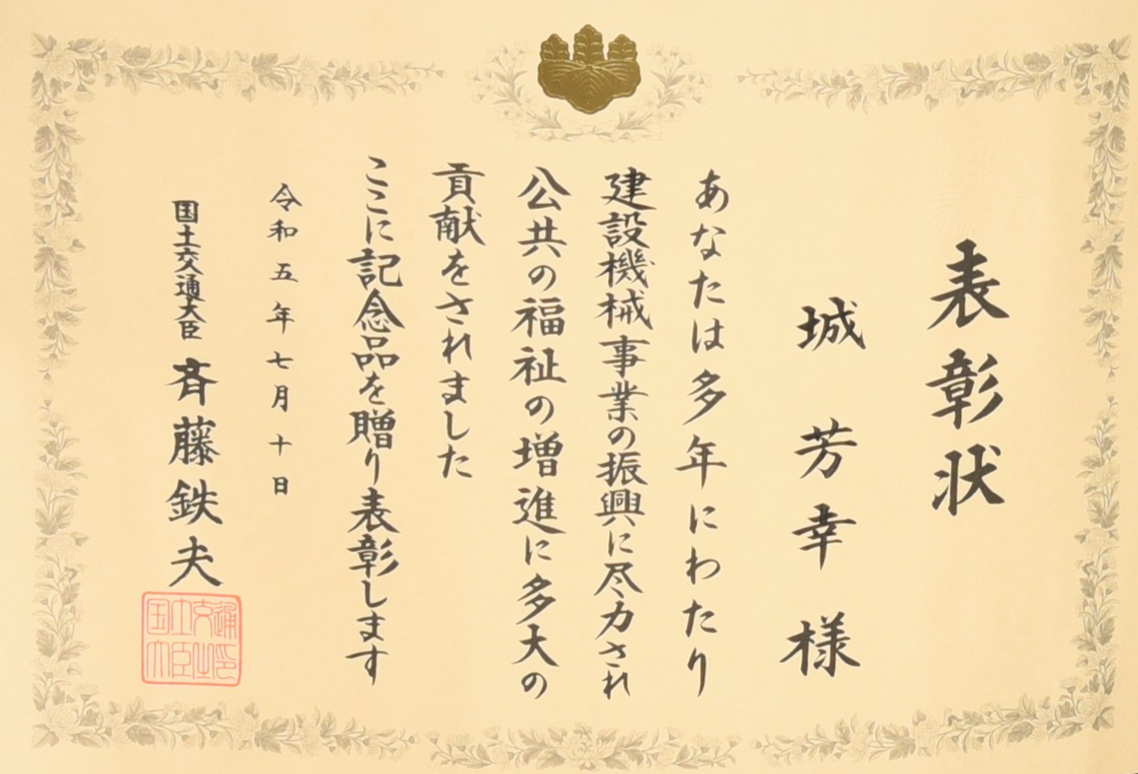 表彰状
城芳幸様
あなたは多年にわたり
建設機械事業の振興に尽力され
公共の福祉の増進に多大の
貢献をされました
ここに記念品を贈り表彰します
令和五年七月十日
国土交通大臣 斉藤鉄夫